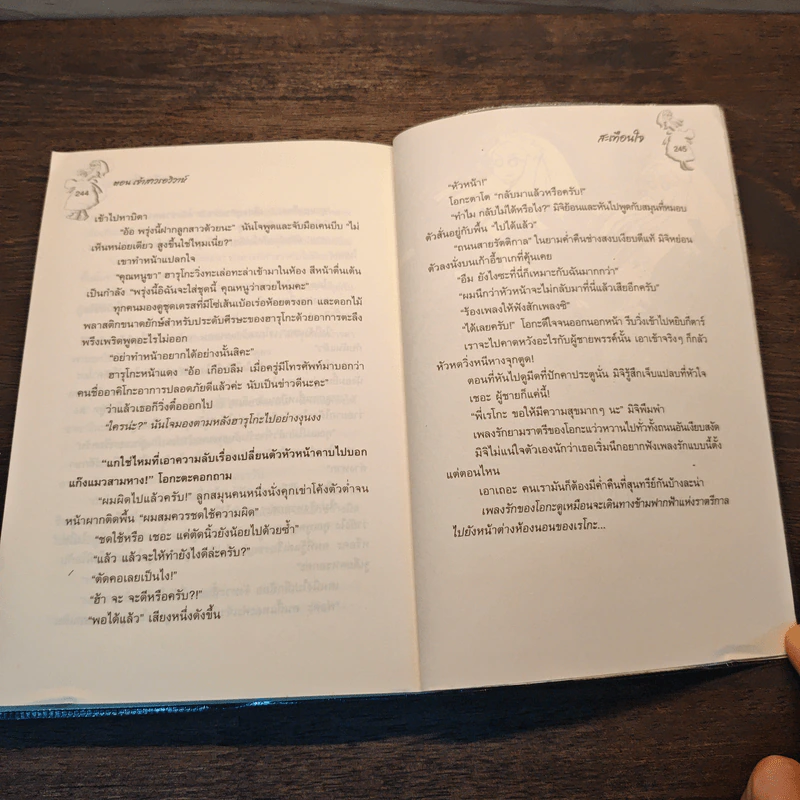 244
ตอน เจ้าสาวเอวิวาห์
เข้าไปหาบิดา
"อ้อ พรุ่งนี้ฝากลูกสาวด้วยนะ" นันโจพูดและจับมือเคนบีบ "ไม่
เห็นหน่อยเดียว สูงขึ้นใช่ไหมเนี่ย?"
เขาทำหน้าแปลกใจ
"คุณหนูขา" ฮารุโกะวิ่งทะเล่อทะล่าเข้ามาในห้อง สีหน้าตื่นเต้น
เป็นกำลัง "พรุ่งนี้อิฉันจะใส่ชุดนี้ คุณหนูว่าสวยไหมคะ"
ทุกคนมองดูชุดเดรสที่มีโซ่เส้นเบ้อเร่อห้อยตรงอก และดอกไม้
พลาสติกขนาดยักษ์สำหรับประดับศีรษะของฮารุโกะด้วยอาการตะลึง
พรึงเพริดพูดอะไรไม่ออก
"อย่าทำหน้าอยากได้อย่างนั้นสิคะ"
ฮารุโกะหน้าแดง "อ้อ เกือบลืม เมื่อครู่มีโทรศัพท์มาบอกว่า
คนชื่ออาคิโกะอาการปลอดภัยดีแล้วค่ะ นับเป็นข่าวดีนะคะ"
ว่าแล้วเธอก็วิ่งตื๋อออกไป
"ใครน่ะ?" นันโจมองตามหลังฮารุโกะไปอย่างงุนงง
"แกใช่ไหมที่เอาความลับเรื่องเปลี่ยนตัวหัวหน้าคาบไปบอก
แก๊งแมวสามหาง!" โอกะตะคอกถาม
"ผมผิดไปแล้วครับ!" ลูกสมุนคนหนึ่งนั่งคุกเข่าโค้งตัวต่ำจน
หน้าผากติดพื้น "ผมสมควรชดใช้ความผิด"
"ชดใช้หรือ เชอะ แค่ตัดนิ้วยังน้อยไปด้วยซ้ำ"
"แล้ว แล้วจะให้ทำยังไงดีล่ะครับ?"
"ตัดคอเลยเป็นไง!"
"ฮ้า จะ จะดีหรือครับ?!"
"พอได้แล้ว" เสียงหนึ่งดังขึ้น
สะเทือนใจ
245
"หัวหน้า!"
โอกะตาโต "กลับมาแล้วหรือครับ!"
"ทำไม กลับไม่ได้หรือไง?" มิจิย้อนและหันไปพูดกับสมุนที่หมอบ
ตัวสั่นอยู่กับพื้น "ไปได้แล้ว"
"ถนนสายรัตติกาล" ในยามค่ำคืนช่างสงบเงียบดีแท้ มิจิหย่อน
ตัวลงนั่งบนเก้าอี้ขาเกที่คุ้นเคย
"อืม ยังไงซะที่นี่ก็เหมาะกับฉันมากกว่า"
"ผมนึกว่าหัวหน้าจะไม่กลับมาที่นี่แล้วเสียอีกครับ"
"ร้องเพลงให้ฟังสักเพลงซิ"
"ได้เลยครับ!" โอกะดีใจจนออกนอกหน้า รีบวิ่งเข้าไปหยิบกีตาร์
เราจะไปคาดหวังอะไรกับผู้ชายพรรค์นั้น เอาเข้าจริงๆ ก็กลัว
หัวหดวิ่งหนีหางจุกตูด!
ตอนที่หันไปดูมีดที่ปักคาประตูนั่น มิจิรู้สึกเจ็บแปลบที่หัวใจ
เชอะ ผู้ชายก็แค่นี้!
"พี่เรโกะ ขอให้มีความสุขมากๆ นะ" มิจิพึมพำ
เพลงรักยามราตรีของโอกะแว่วหวานไปทั่วทั้งถนนอันเงียบสงัด
มิจิไม่แน่ใจตัวเองนักว่าเธอเริ่มนึกอยากฟังเพลงรักแบบนี้ตั้ง
แต่ตอนไหน
เอาเถอะ คนเรามันก็ต้องมีค่ำคืนที่สุนทรีย์กันบ้างละน่า
เพลงรักของโอกะดูเหมือนจะเดินทางข้ามฟากฟ้าแห่งราตรีกาล
ไปยังหน้าต่างห้องนอนของเรโกะ...